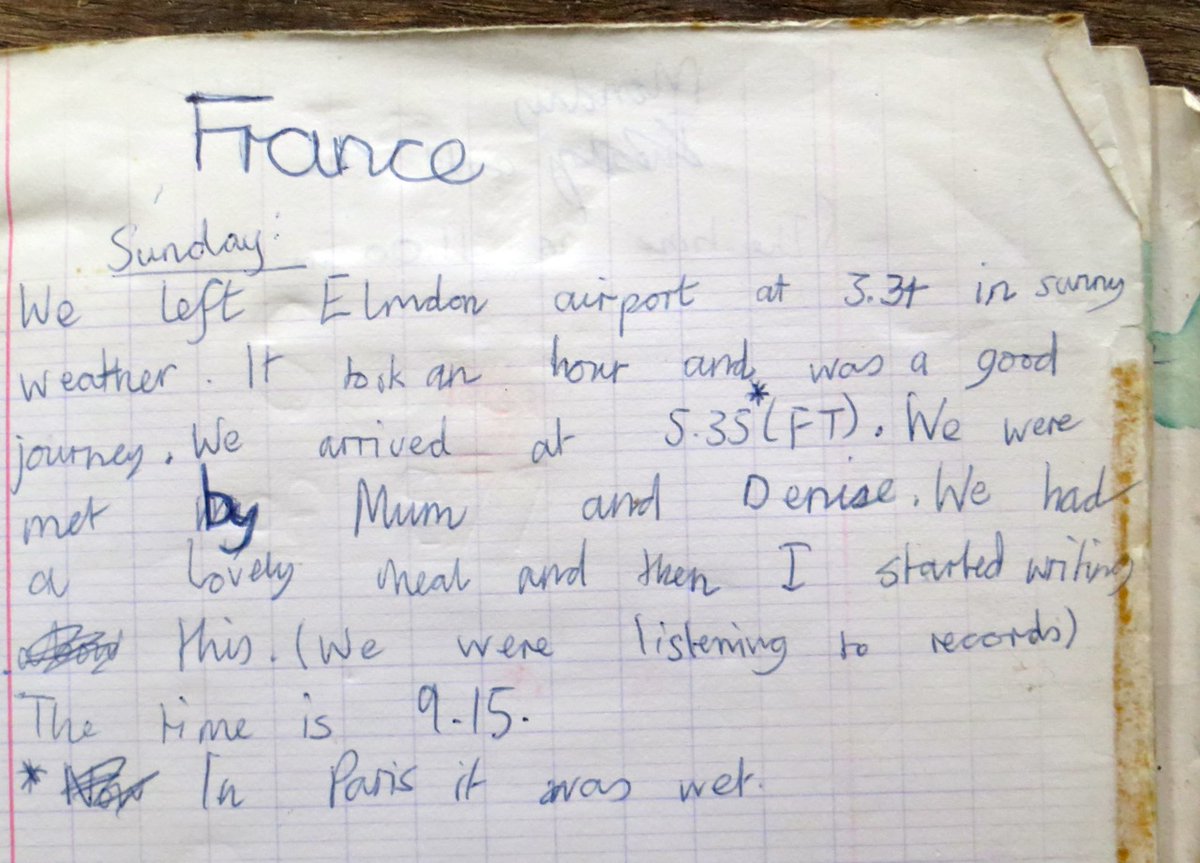 France
Sunday:
We left Elmdon airport at 3.34 in sunny
weather. It took an hour and was a good
journey. We arrived at 5.35*(FT). We were
met by Mum and Denise. We had
a lovely meal and then I started writing
this. (We were listening to records)
The time is 9.15.
* In Paris it was wet.